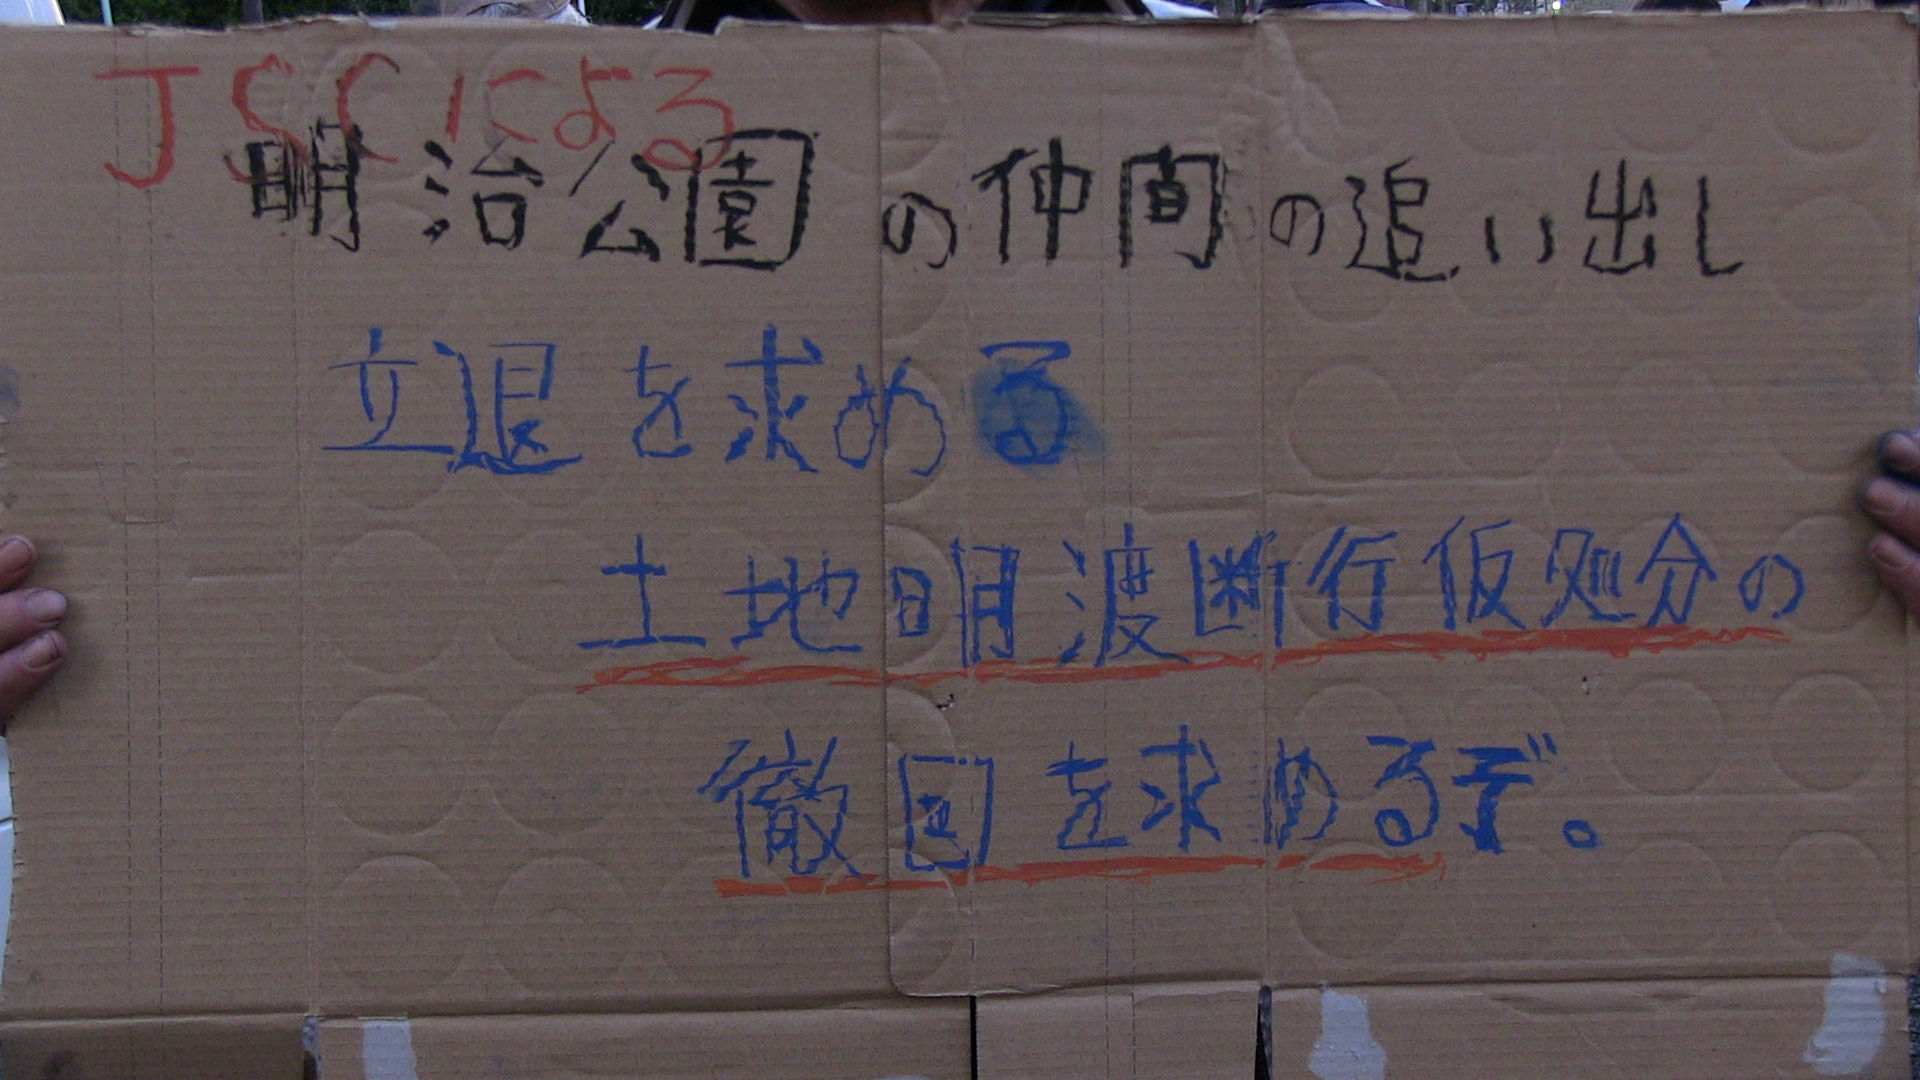 JSCによる
明治公園の仲間の追い出し
立退を求める
土地明渡断行仮処分の
徹回を求めるぞ。